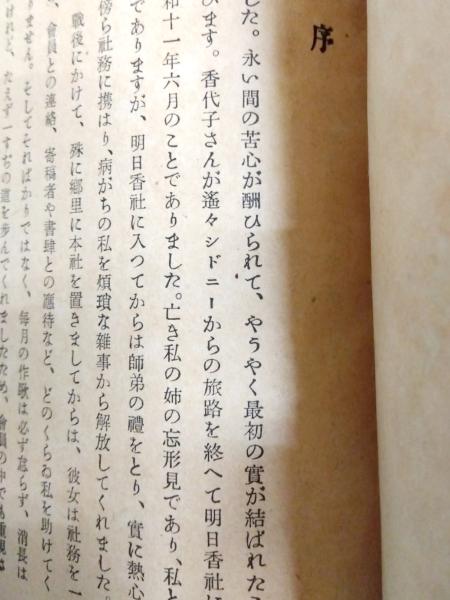 序
した。永い間の苦心が酬ひられて、やうやく最初の實が結ばれた
います。香代子さんが遙々シドニーからの旅路を終へて明日香社に
和十一年六月のことでありました。亡き私の姉の忘形見であり、私と
でありますが、明日香社に入つてからは師弟の禮をとり、實に熱心
傍ら社務に携はり、病がちの私を煩瑣な雜事から解放してくれました。
戰後にかけて、殊に郷里に本社を置きましてからは、彼女は社務を一
會員との連絡、寄稿者や書肆との應待など、どのくらゐ私を助けてく
ません。そしてそればかりではなく、毎月の作歌は必ず怠らず、消長は
けれど、たえず一すぢの道を歩んでくれましたため、會員の中でも